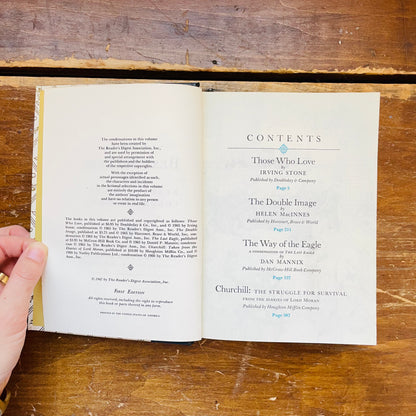 The condensations in this volume
have been created by
The Reader's Digest Association, Inc.,
and are used by permission of
and special arrangement with
the publishers and the holders
of the respective copyrights.
With the exception of
actual personages identified as such,
the characters and incidents
in the fictional selections in this volume
are entirely the product of
the authors' imaginations
and have no relation to any
person or event in real life.
The books in this volume are published and copyrighted as follows: Those
Who Love,
The Double
Image,
The Last Eagle,
Churchill: Taken from the
Diaries of Lord Moran,
© 1967 by The Reader's Digest Association, Inc.
First Edition
All rights reserved, including the right to reproduce
this book or parts thereof in any form.
PRINTED IN THE UNITED STATES OF AMERICA
CONTENTS
Those Who Love
By
IRVING STONE
Published by Doubleday & Company
Page 5
The Double Image
By
HELEN MacINNES
Published by Harcourt, Brace & World
Page 211
The Way of the Eagle
A CONDENSATION OF THE LAST EAGLE
By
DAN MANNIX
Published by McGraw-Hill Book Company
Page 337
Churchill: THE STRUGGLE FOR SURVIVAL
FROM THE DIARIES OF LORD MORAN
Published by Houghton Mifflin Company
Page 387